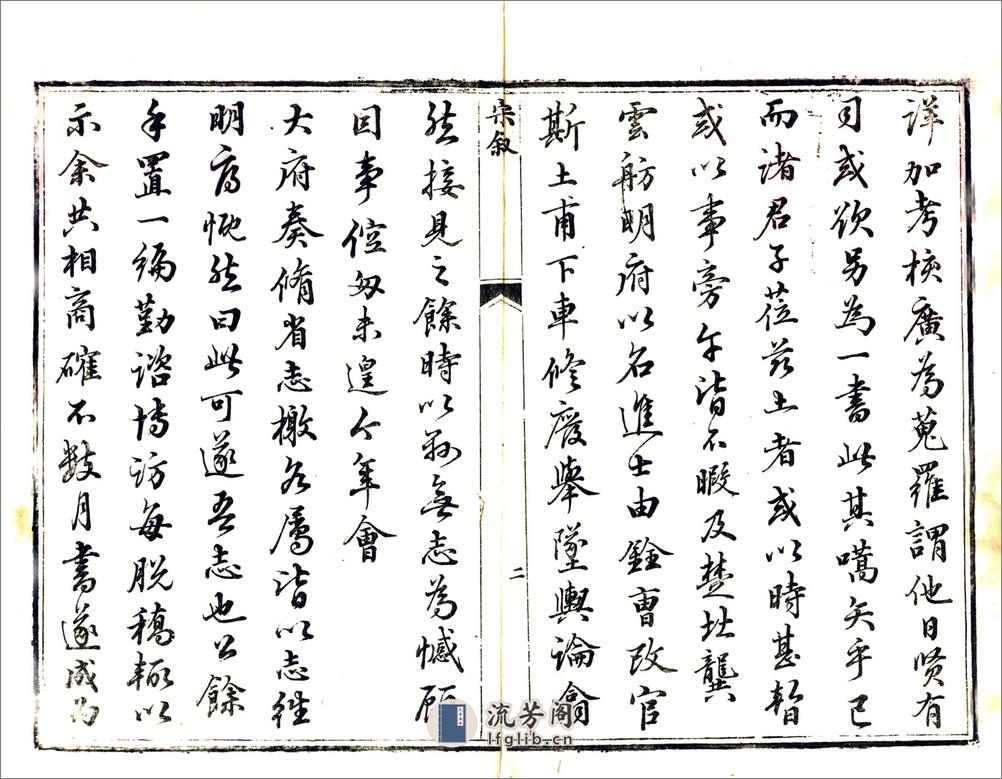 詳加考核廣為蒐羅謂他日贤有
司或欲另為一書此其嚆矢乎已
而諸君子莅茲土者或以時甚暫
或以事旁午皆不暇及楚北龔
雲舫明府以名進士由銓曹改官
斯土甫下車修廢舉墜輿論翕
宗叙
二
然接見之餘時以縣無志為憾顧
因事倥匆未遑今年會
大府奏脩省志檄各屬皆以志進
明府慨然曰此可遂吾志也公餘
手置一編勤諮博訪每脱稿輒以
示余共相商確不數月書遂成为
流芳阁
lfglib.cn